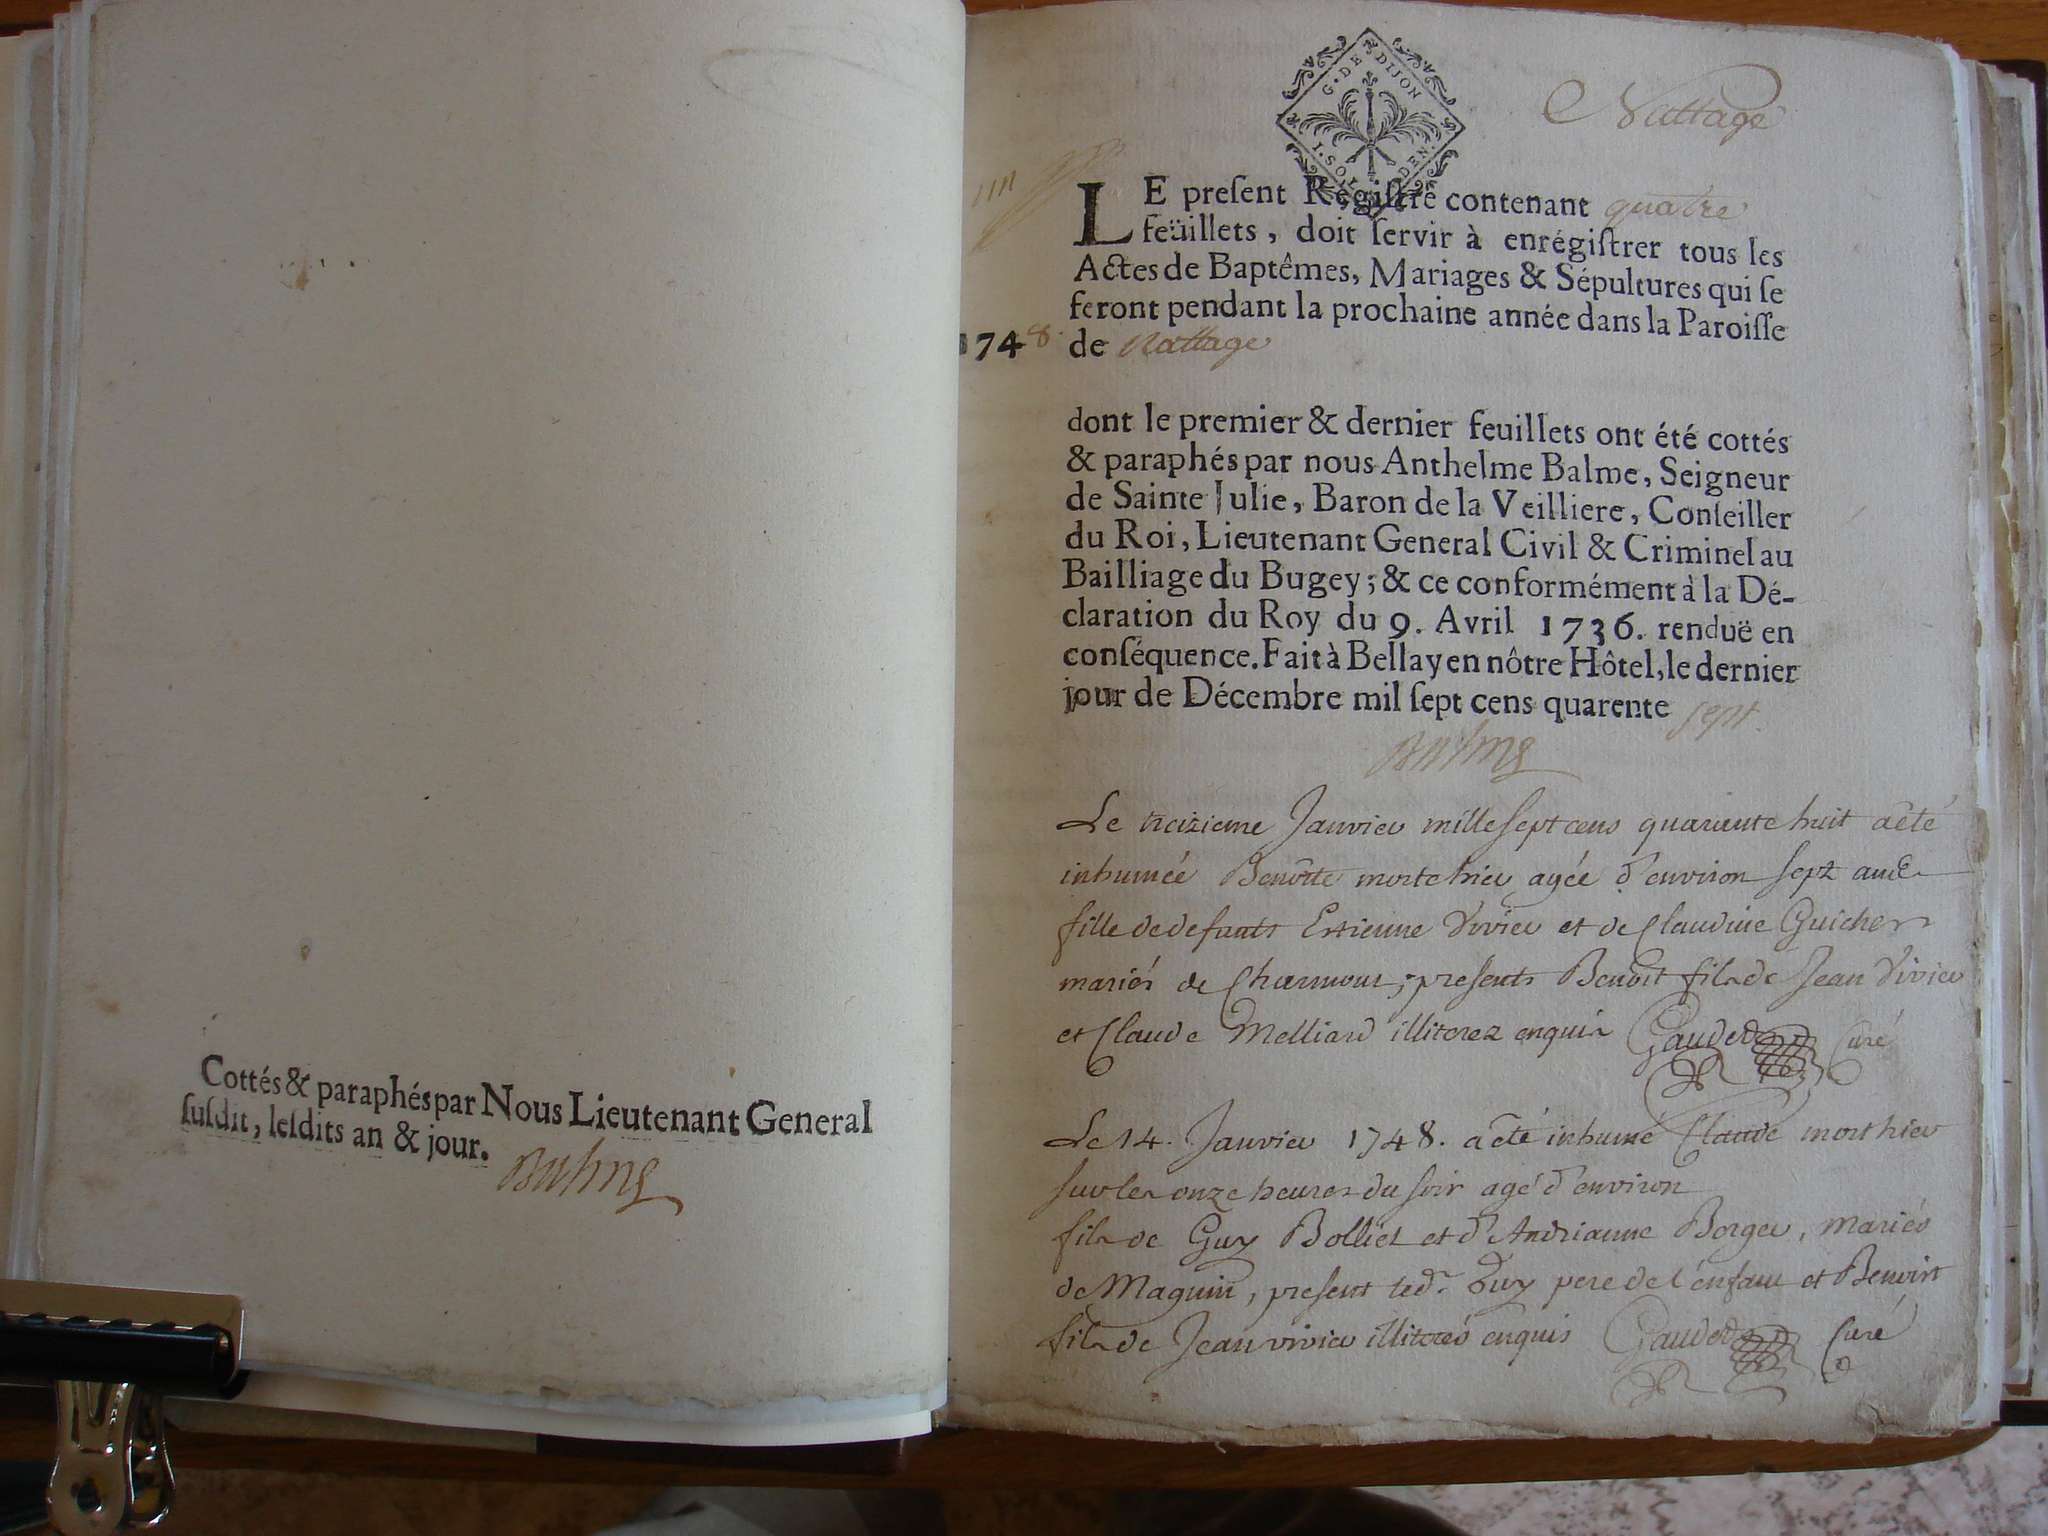 Cottés & paraphés par Nous Lieutenant General
susdit, lesdits an & jour.
Balme
G. DE DIJON
I. SOL
DEN.
Nattage
un
LE present Registre contenant quatre
feüillets, doit servir à enrégistrer tous les
Actes de Baptêmes, Mariages & Sépultures qui se
feront pendant la prochaine année dans la Paroisse
1748 de Nattage
dont le premier & dernier feuillets ont été cottés
& paraphés par nous Anthelme Balme, Seigneur
de Sainte Julie, Baron de la Veilliere, Conseiller
du Roi, Lieutenant General Civil & Criminel au
Bailliage du Bugey; & ce conformément à la Dé-
claration du Roy du 9. Avril 1736. renduë en
conséquence. Fait à Bellay en nôtre Hôtel, le dernier
jour de Décembre mil sept cens quarente sept
Balme
Le treizieme Janvier mille sept cens quarante huit a été
inhumée Benoite morte hier agée d'environ sept ans
fille de defunts Estienne Vivier et de Claudine Guicher
mariés de Charmour; presents Benoit fils de Jean Vivier
et Claude Melliard illiterez enquis Gaudet Curé
Le 14. Janvier 1748. a été inhumé Claude mort hier
sur les onze heures du soir agé d'environ
fils de Guy Bolliet et d'Andrianne Borger, mariés
de Magnin, present led. Guy pere de l'enfant et Benoist
fils de Jean vivier illiterés enquis Gaudet Curé